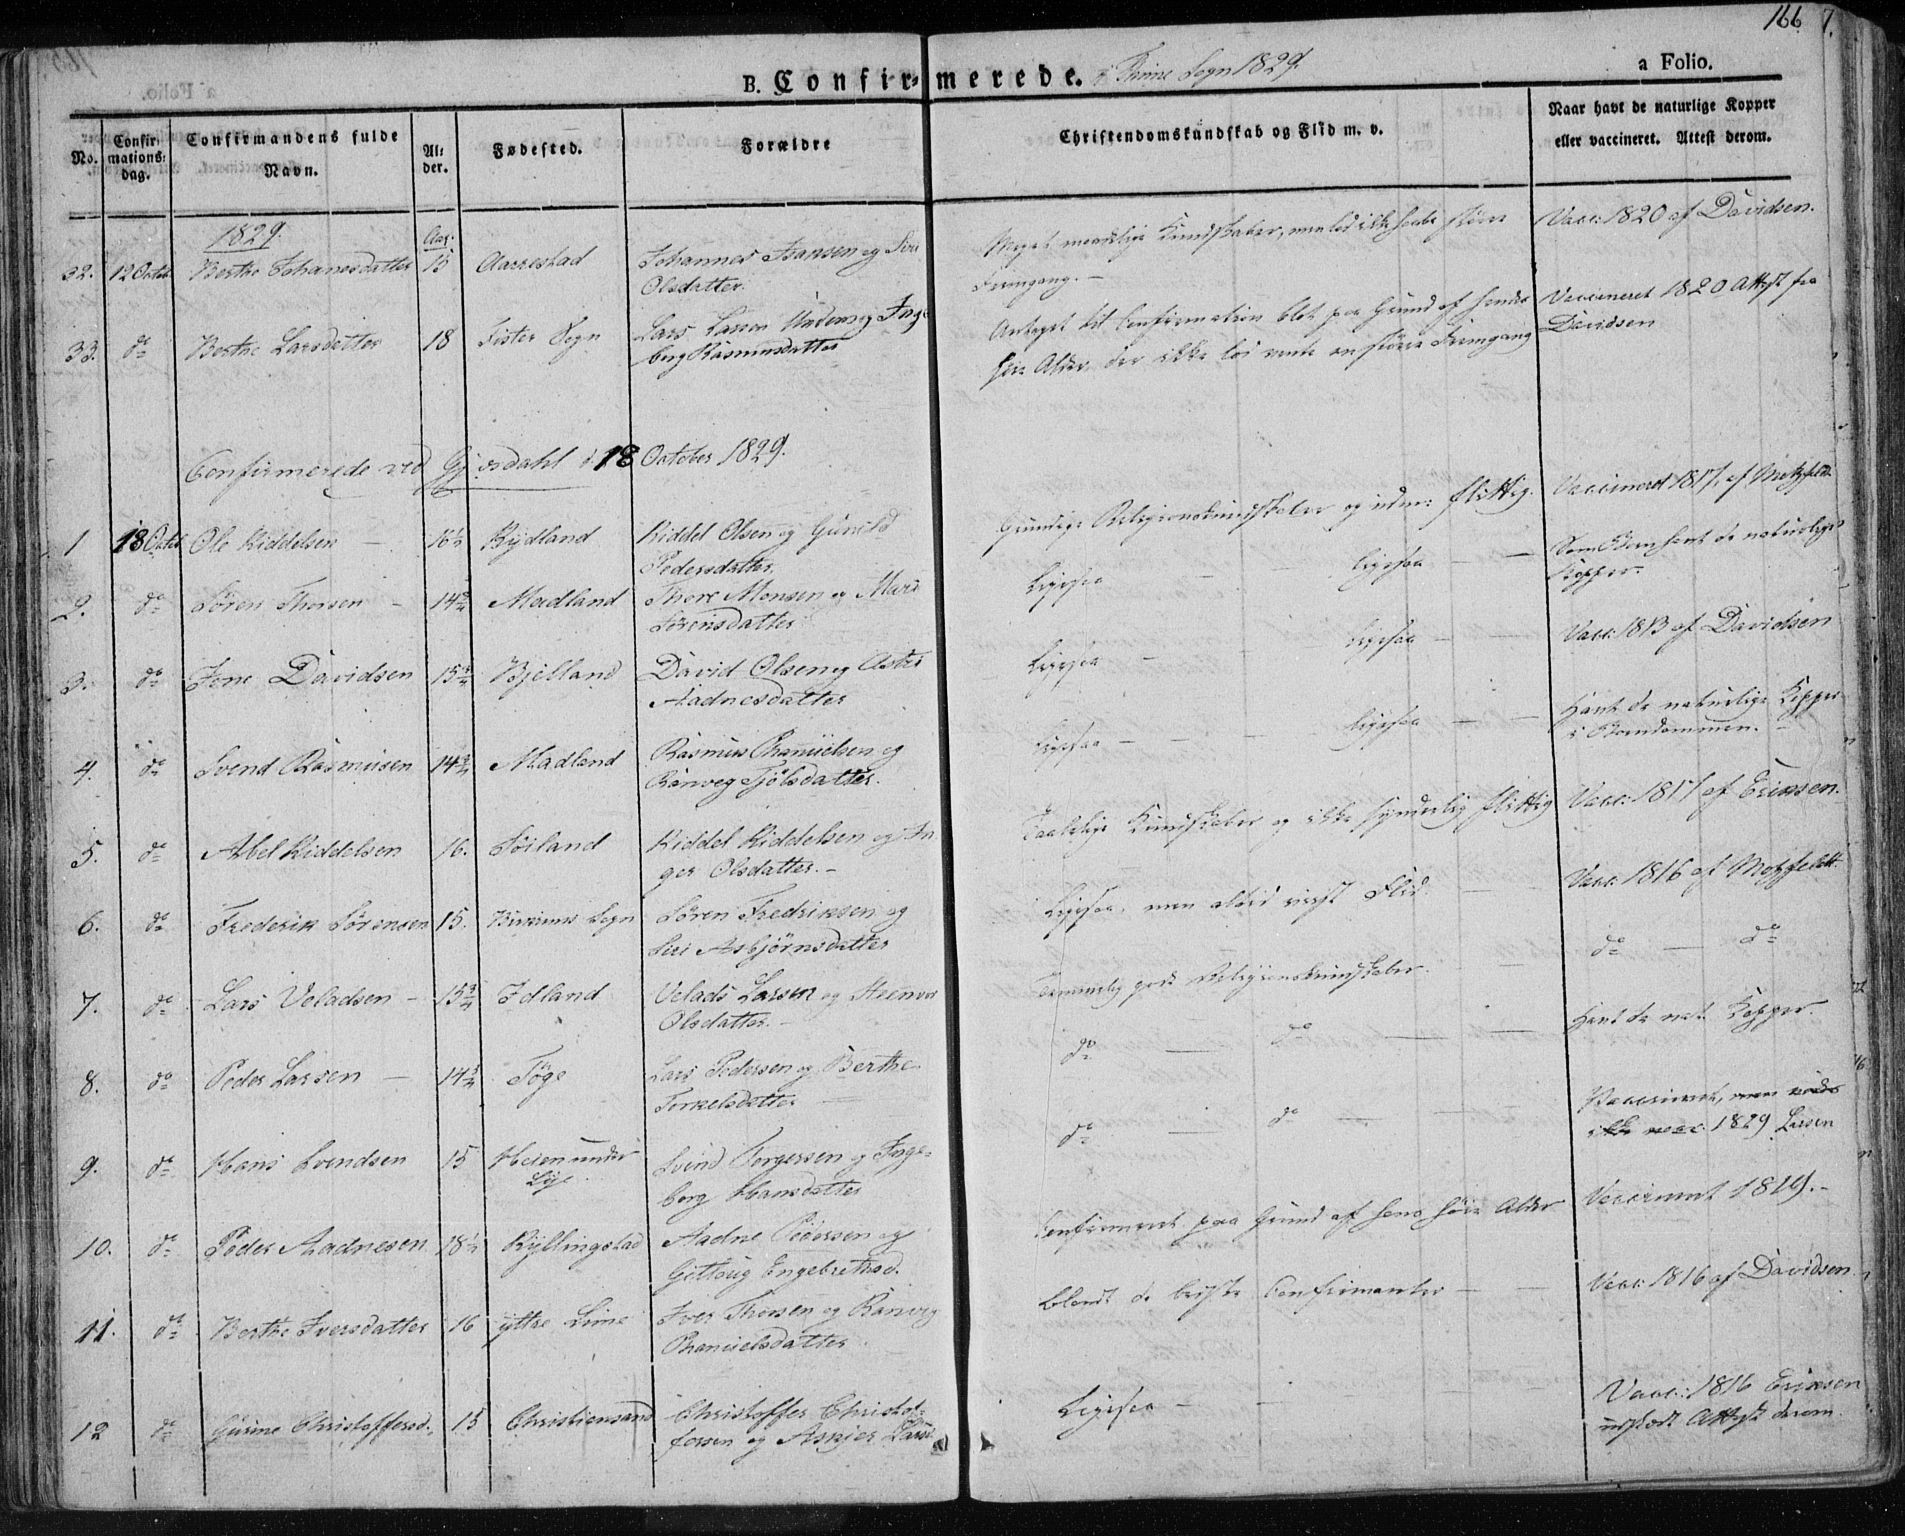 166
7.
B. Confir- merede. i Thime Sogn 1829.
a Folio.
No.
Confir-
mations-
dag.
Confirmandens fulde
Navn.
Al-
der.
Fødested.
Forældre
Christendomskundskab og Flid m. v.
Naar havt de naturlige Kopper
eller vaccineret. Attest derom.
1829
Aar.
32. 12 Octob Berthe Johanesdatter 15 Aarrestad Johannes Isaksen og Siri
Olsdatter.
Meget maadelige Kundskaber, men lod ikke haabe større
Fremgang. -
Vacc: 1820 af Davidsen.
33. do Berthe Larsdatter 18 Fister Sogn Lars Larsen og Inge
berg Rasmusdatter
Antaget til Confirmation blot paa Grund af hendes
høie Alder, der ikke lod vente en større Fremgang
Vaccineret 1820 Attest fra
Davidsen
Confirmerede ved Gjesdahl d 18 October 1829.
1 18 Octob Ole Kiddelsen - 16½ Rydland Kiddel Olsen og Gunild
Pedersdatter.
Grundige Religionskundskaber og udm: flittig.
Vaccineret 1817 af Mozfeldt
2. do Sören Thorsen - 14¾ Madland Thore Monsen og Mari
Sörensdatter
Ligesaa - - ligesaa - -
Som Barn havt de naturlige
Kopper.
3. do Jone Davidsen 15¾ Bjelland David Olsen og Aster
Aadnesdatter
Ligesaa - - ligesaa - -
Vacc: 1813 af Davidsen
4. do Svend Rasmusen 14¾ Madland Rasmus Thanielsen og
Ranveg Tjölsdatter.
Ligesaa - - - ligesaa - -
Havt de naturlige Kopper
i Barndommen.
5. do Abel Kiddelsen 16. Söiland Kiddel Kiddelsen og In
ger Olsdatter. -
Taalelige Kundskaber og ikke synderlig flittig
Vacc: 1817 af Eriksen.
6. do Frederik Sörensen 15. Birkrems Sogn Sören Fredriksen og
Siri Asbjörnsdatter
Ligesaa, men altid viist Flid.
Vacc: 1816 af Mozfeldt.
7. do Lars Veladsen - 15¾ Idland Velads Larsen og Steenvor
Olsdatter. -
Temmelig gode Religionskundskaber.
do - do
8. do Peder Larsen - 14¾ Töge Lars Pedersen og Berthe
Torkelsdatter -
do - do -
Havt de nat. Kopper.
9. do Hans Svendsen 15 Heien under
Lye
Svend Torgersen og Inge-
borg Hansdatter
do - do -
Vaccineret, men
ikke 1829 Larsen
10. do Peder Aadnesen 18½ Kyllingstad Aadne Pedersen og
Gitlaug Engebretsd.
Confirmeret paa Grund af hans høie Alder
Vaccineret 1819. -
11. do Berthe Iversdatter 16 yttre Lime Iver Thorsen og Ranveg
Thanielsdatter
blandt de bedste Confirmanter - -
Vacc: 1816 af Davidsen
12 do Gurine Christoffersd. 15 Christiansand Christoffer Christof-
fersen og Asgjer Larsd
Ligesaa - -
Vacc: 1816 Eriksen
udstædt Attest derom